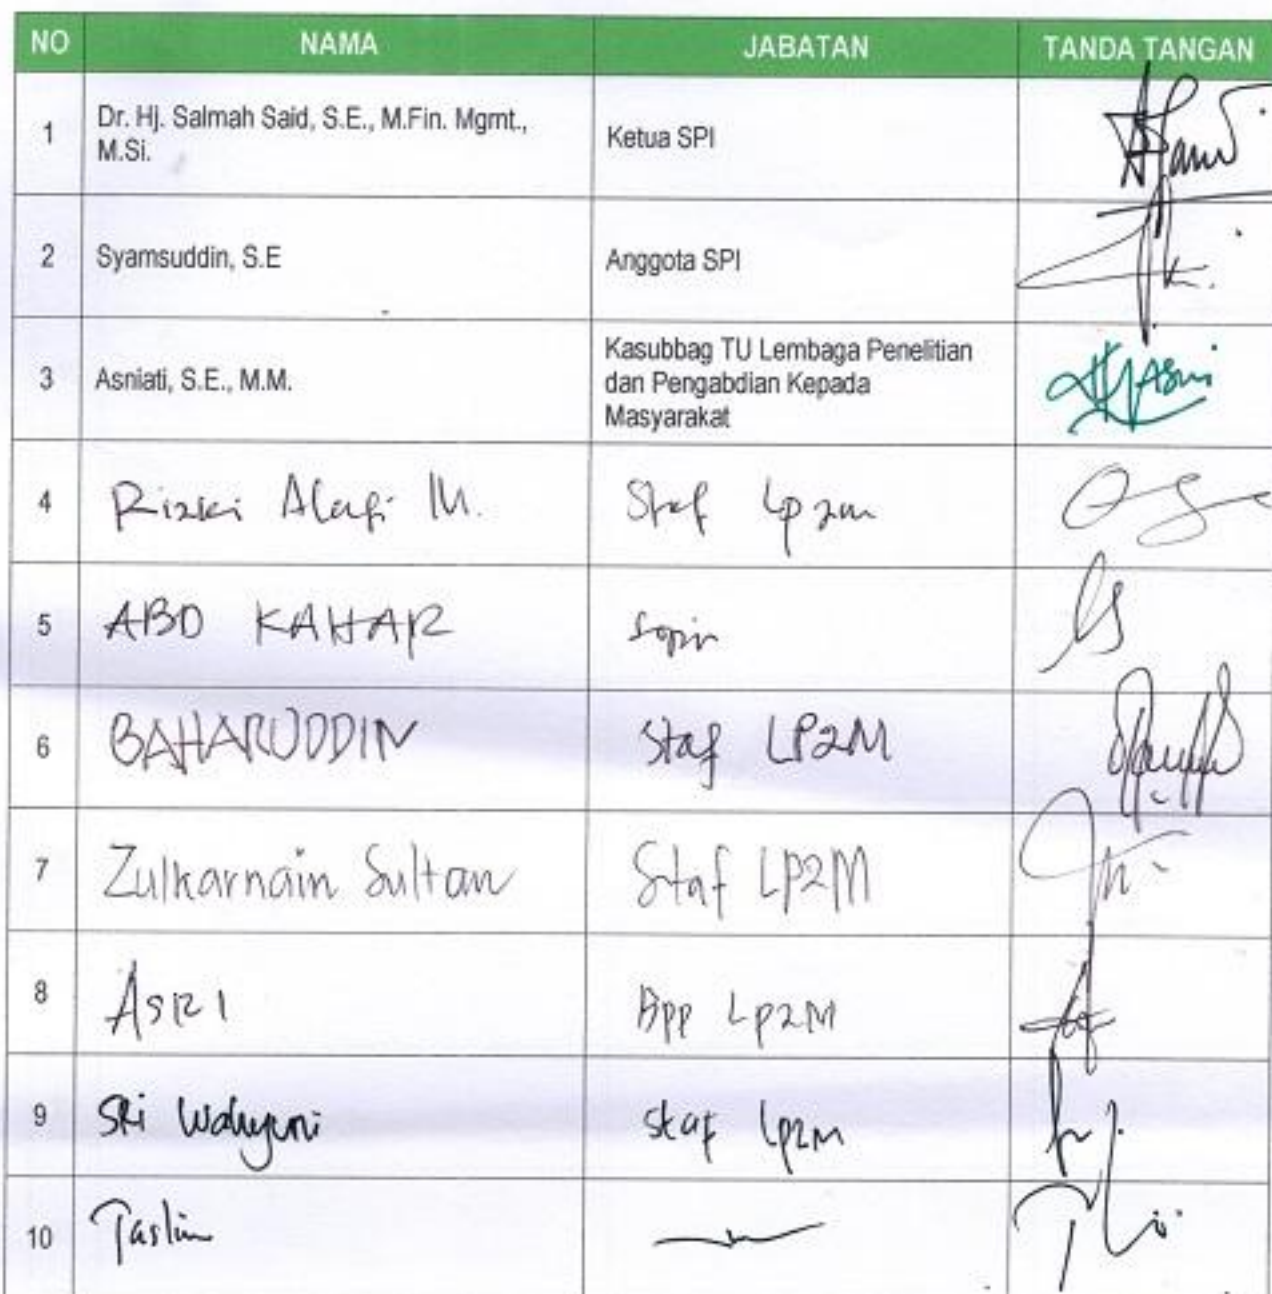 NO NAMA JABATAN TANDA TANGAN
1 Dr. Hj. Salmah Said, S.E., M.Fin. Mgmt., Ketua SPI
M.Si.
2 Syamsuddin, S.E Anggota SPI
3 Asniati, S.E., M.M. Kasubbag TU Lembaga Penelitian
dan Pengabdian Kepada
Masyarakat
4 Rizki M. Staf Lp2m
5 ABD KAHAR
6 BAHARUDDIN Staf LP2M
7 Zulkarnain Sultan Staf LP2M
8 ASRI BPP LP2M
9 SRi Wahyuni Staf Lp2M
10 Taslim